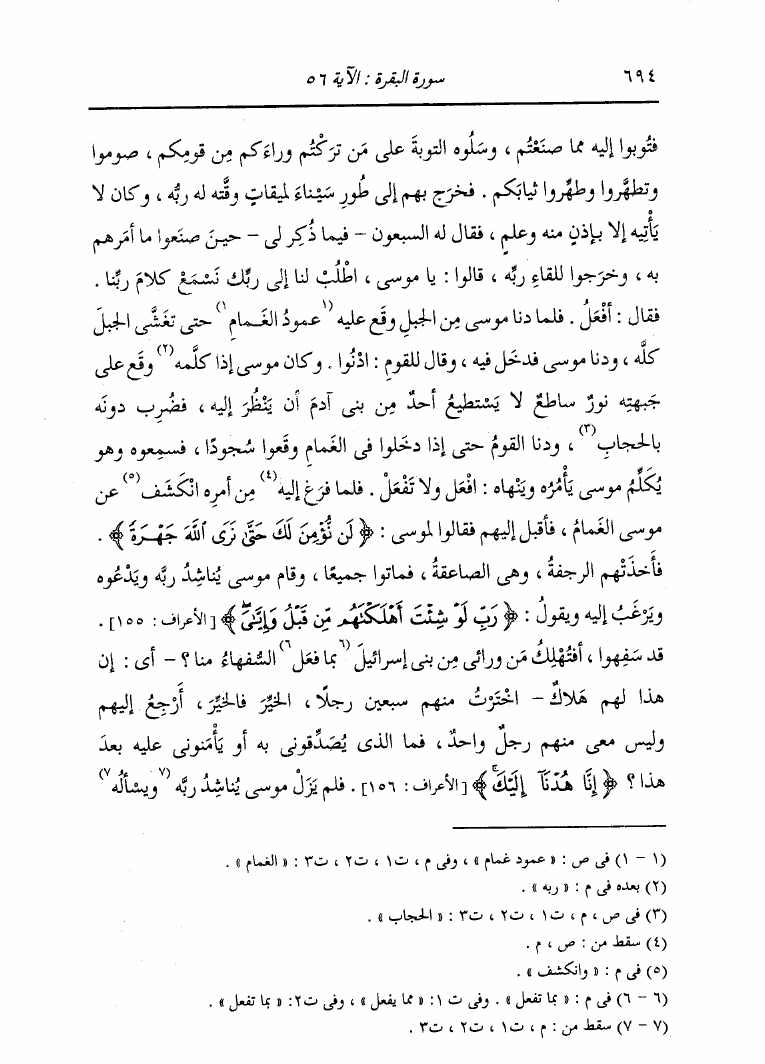 ٦٩٤
سورة البقرة : الآية ٥٦
فتُوبوا إليه مما صنَعْتُم ، وسَلُوه التوبةَ على مَن ترَكْتُم وراءَكم مِن قومِكم ، صوموا
وتطهَّروا وطهِّروا ثيابَكم . فخرَج بهم إلى طُورِ سَيْناءَ لميقاتٍ وقَّته له ربُّه ، وكان لا
يَأْتِيه إلا بإذنٍ منه وعلمٍ ، فقال له السبعون – فيما ذُكِر لى – حينَ صنَعوا ما أمَرهم
به ، وخرَجوا للقاءِ ربِّه ، قالوا : يا موسى ، اطْلُبْ لنا إلى ربِّك نَسْمَعْ كلامَ ربِّنا .
فقال : أفْعَلُ . فلما دنا موسى مِن الجبلِ وقَع عليه (١عمودُ الغَمامِ١) حتى تغَشَّى الجبلَ
كلَّه ، ودنا موسى فدخَل فيه ، وقال للقومِ : ادْنُوا . وكان موسى إذا كلَّمه(٢) وقَع على
جَبهتِه نورٌ ساطعٌ لا يَسْتطيعُ أحدٌ مِن بنى آدمَ أن يَنْظُرَ إليه ، فضُرِب دونَه
بالحجابِ(٣) ، ودنا القومُ حتى إذا دخَلوا فى الغَمامِ وقَعوا سُجودًا ، فسمِعوه وهو
يُكَلِّمُ موسى يَأْمُرُه ويَنْهاه : افْعَل ولا تَفْعَلْ . فلما فرَغ إليه(٤) مِن أمرِه انْكَشَف(٥) عن
موسى الغَمامُ ، فأقبل إليهم فقالوا لموسى : ﴿ لَن نُّؤْمِنَ لَكَ حَتَّىٰ نَرَى ٱللَّهَ جَهْرَةً ﴾ .
فأخذَتْهم الرجفةُ ، وهى الصاعقةُ ، فماتوا جميعًا ، وقام موسى يُناشِدُ ربَّه ويَدْعُوه
ويَرْغَبُ إليه ويقولُ : ﴿ رَبِّ لَوْ شِئْتَ أَهْلَكْتَهُم مِّن قَبْلُ وَإِيَّٰىَ ﴾ [ الأعراف : ١٥٥ ] .
قد سَفِهوا ، أفتُهْلِكُ مَن ورائى مِن بنى إسرائيلَ (٦بما فعَل٦) السُّفهاءُ منا ؟ – أى : إن
هذا لهم هَلاكٌ – اخْتَرْتُ منهم سبعين رجلًا ، الخيِّرَ فالخيِّرَ ، أَرْجِعُ إليهم
وليس معى منهم رجلٌ واحدٌ ، فما الذى يُصَدِّقونى به أو يَأْمَنونى عليه بعدَ
هذا ؟ ﴿ إِنَّا هُدْنَآ إِلَيْكَ ﴾ [ الأعراف : ١٥٦ ] . فلم يَزَلْ موسى يُناشِدُ ربَّه (٧ويسألُه٧)
(١ – ١) فى ص : « عمود غمام » ، وفى م ، ت١ ، ت٢ ، ت٣ : « الغمام » .
(٢) بعده فى م : « ربه » .
(٣) فى ص ، م ، ت١ ، ت٢ ، ت٣ : « الحجاب » .
(٤) سقط من : ص ، م .
(٥) فى م : « وانكشف » .
(٦ – ٦) فى م : « بما تفعل » . وفى ت ١ : « مما يفعل » ، وفى ت٢ : « بما تفعل » .
(٧ – ٧) سقط من : م ، ت١ ، ت٢ ، ت٣ .